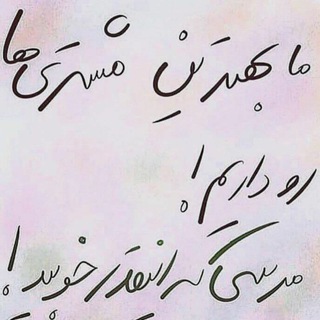 ما بهترین مشتری‌ها
رو داریم!
مرسی که اینقدر خوبید!